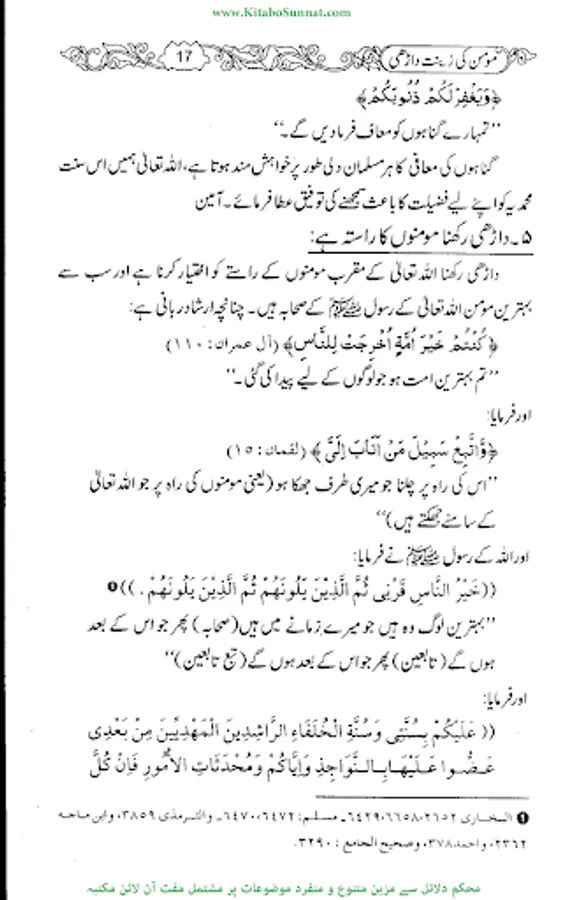 www.KitaboSunnat.com
مؤمن کی زینت داڑھی
17
﴿وَيَغْفِرْ لَكُمْ ذُنُوبَكُمْ﴾
’’تمہارے گناہوں کو معاف فرما دیں گے۔‘‘
گناہوں کی معافی کا ہر مسلمان دلی طور پر خواہش مند ہوتا ہے، اللہ تعالیٰ ہمیں اس سنت
محمدیہ کو اپنے لیے فضیلت کا باعث سمجھنے کی توفیق عطا فرمائے۔ آمین
۵۔ داڑھی رکھنا مومنوں کا راستہ ہے:
داڑھی رکھنا اللہ تعالیٰ کے مقرب مومنوں کے راستے کو اختیار کرنا ہے اور سب سے
بہترین مومن اللہ تعالیٰ کے رسول ﷺ کے صحابہ ہیں۔ چنانچہ ارشاد ربانی ہے:
﴿كُنْتُمْ خَيْرَ أُمَّةٍ أُخْرِجَتْ لِلنَّاسِ﴾ (آل عمران: ۱۱۰)
’’تم بہترین امت ہو جو لوگوں کے لیے پیدا کی گئی۔‘‘
اور فرمایا:
﴿وَّاتَّبِعْ سَبِيْلَ مَنْ اَنَابَ اِلَىَّ﴾ (لقمان: ۱۵)
’’اس کی راہ پر چلنا جو میری طرف جھکا ہو (یعنی مومنوں کی راہ پر جو اللہ تعالیٰ
کے سامنے جھکتے ہیں)‘‘
اور اللہ کے رسول ﷺ نے فرمایا:
((خَيْرُ النَّاسِ قَرْنِى ثُمَّ الَّذِيْنَ يَلُونَهُمْ ثُمَّ الَّذِيْنَ يَلُونَهُمْ.))❶
’’بہترین لوگ وہ ہیں جو میرے زمانے میں ہیں (صحابہ) پھر جو اس کے بعد
ہوں گے (تابعین) پھر جو اس کے بعد ہوں گے (تبع تابعین)‘‘
اور فرمایا:
((عَلَيْكُمْ بِسُنَّتِى وَسُنَّةِ الْخُلَفَاءِ الرَّاشِدِينَ الْمَهْدِيِّينَ مِنْ بَعْدِى
عَضُّوا عَلَيْهَا بِالنَّوَاجِذِ وَإِيَّاكُمْ وَمُحْدَثَاتِ الْأُمُورِ فَإِنَّ كُلَّ
❶ البخاری ۲۶۵۲، ۶۶۵۸، ۶۴۲۹۔ مسلم: ۶۴۷۲، ۶۴۷۰۔ والترمذی ۳۸۵۹، وابن ماجه
۲۳۶۲، واحمد ۳۷۸، وصحیح الجامع: ۳۲۹۰.
محکم دلائل سے مزین متنوع و منفرد موضوعات پر مشتمل مفت آن لائن مکتبہ